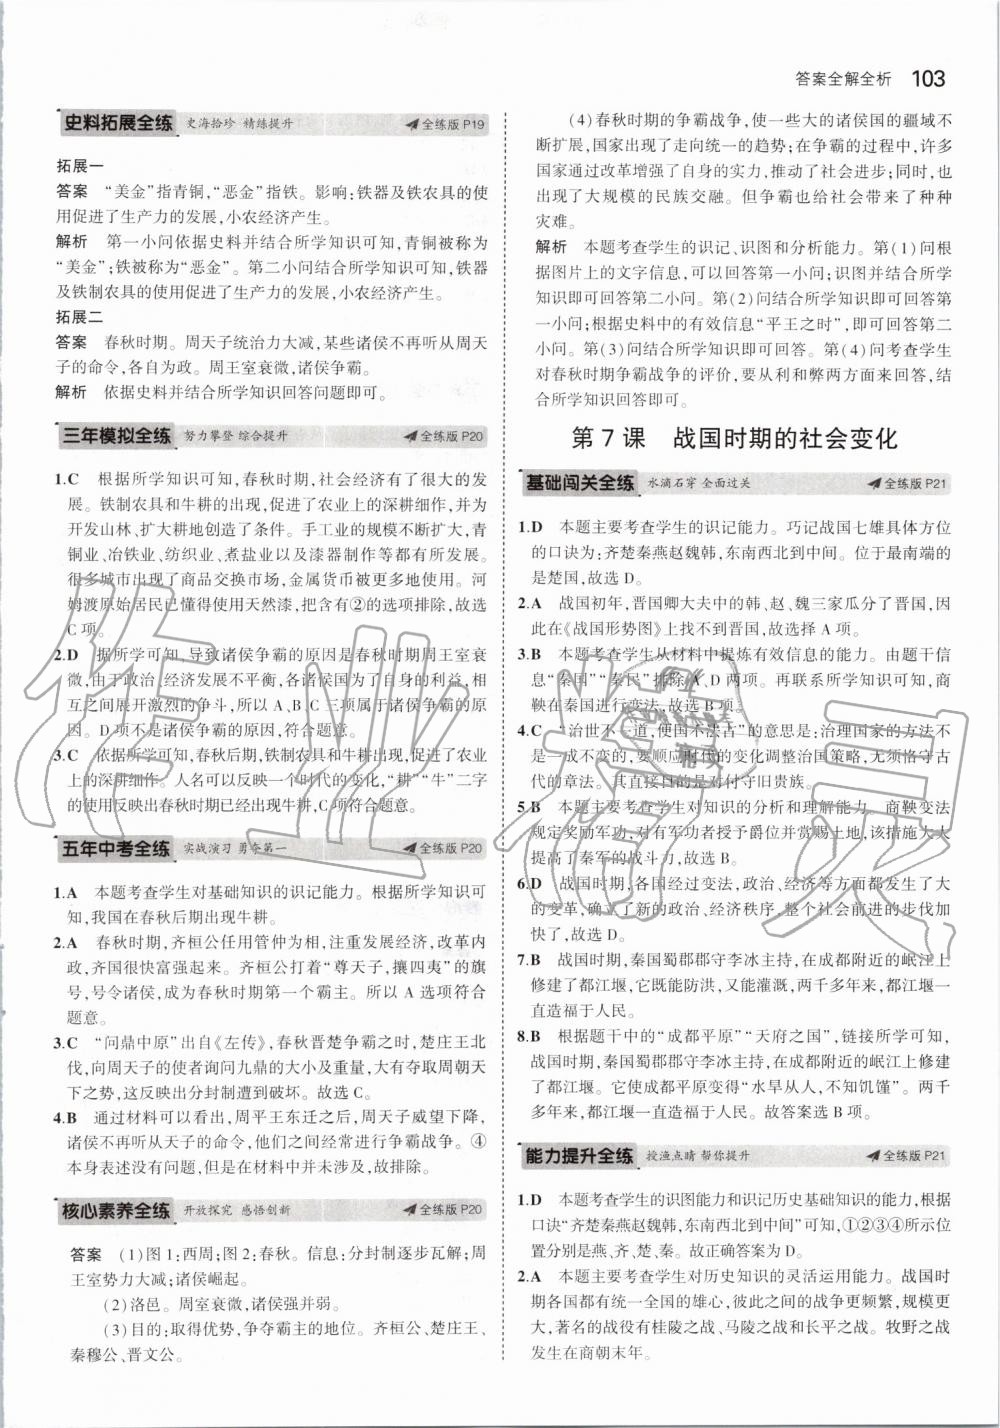 答案全解全析 103
史料拓展全练 史海拾珍 精练提升 全练版 P19
拓展一
答案 “美金”指青铜,“恶金”指铁。影响:铁器及铁农具的使
用促进了生产力的发展,小农经济产生。
解析 第一小问依据史料并结合所学知识可知,青铜被称为
“美金”;铁被称为“恶金”。第二小问结合所学知识可知,铁器
及铁制农具的使用促进了生产力的发展,小农经济产生。
拓展二
答案 春秋时期。周天子统治力大减,某些诸侯不再听从周天
子的命令,各自为政。周王室衰微,诸侯争霸。
解析 依据史料并结合所学知识回答问题即可。
三年模拟全练 努力攀登 综合提升 全练版 P20
1.C 根据所学知识可知,春秋时期,社会经济有了很大的发
展。铁制农具和牛耕的出现,促进了农业的深耕细作,并为
开发山林、扩大耕地创造了条件。手工业的规模不断扩大,青
铜业、冶铁业、纺织业、煮盐业以及漆器制作等都有所发展。
很多城市出现了商品交换市场,金属货币被更多地使用。河
姆渡原始居民已懂得使用天然漆,把含有②的选项排除,故选
C 项。
2.D 据所学可知,导致诸侯争霸的原因是春秋时期周王室衰
微,由于政治、经济发展不平衡,各诸侯国为了自身的利益,相
互之间展开激烈的争斗,所以 A、B、C 三项属于诸侯争霸的原
因。D 项不是诸侯争霸的原因,符合题意。
3.C 依据所学可知,春秋后期,铁制农具和牛耕,促进了农业
上的深耕细作。人名可以反映一个时代的变化,“耕”“牛”二字
的使用反映出春秋时期已经出现牛耕,C 项符合题意。
五年中考全练 实战演习 勇夺第一 全练版 P20
1.A 本题考查学生对基础知识的识记能力。根据所学知识可
知,我国在春秋后期出现牛耕。
2.A 春秋时期,齐桓公任用管仲为相,注重发展经济,改革内
政,齐国很快富强起来。齐桓公打着“尊天子,攘四夷”的旗
号,号令诸侯,成为春秋时期第一个霸主。所以 A 选项符合
题意。
3.C “问鼎中原”出自《左传》,春秋晋楚争霸之时,楚庄王北
伐,向周天子的使者询问九鼎的大小及重量,大有夺取周朝天
下之势,这反映出分封制遭到破坏。故选 C。
4.B 通过材料可以看出,周平王东迁之后,周天子威望下降,
诸侯不再听从天子的命令,他们之间经常进行争霸战争。④
本身表述没有问题,但是在材料中并未涉及,故排除。
核心素养全练 开放探究 感悟创新 全练版 P20
答案 (1)图 1:西周;图 2:春秋。信息:分封制逐步瓦解;周
王室势力大减;诸侯崛起。
(2)洛邑。周室衰微,诸侯强并弱。
(3)目的:取得优势,争夺霸主的地位。齐桓公、楚庄王、
秦穆公、晋文公。
(4)春秋时期的争霸战争,使一些大的诸侯国的疆域不
断扩展,国家出现了走向统一的趋势;在争霸的过程中,许多
国家通过改革增强了自身的实力,推动了社会进步;同时,也
出现了大规模的民族交融。但争霸也给社会带来了种种
灾难。
解析 本题考查学生的识记、识图和分析能力。第(1)问根
据图片上的文字信息,可以回答第一小问;识图并结合所学
知识即可回答第二小问。第(2)问结合所学知识即可回答第
一小问;根据史料中的有效信息“平王之时”,即可回答第二
小问。第(3)问结合所学知识即可回答。第(4)问考查学生
对春秋时期争霸战争的评价,要从利和弊两方面来回答,结
合所学知识回答即可。
第 7 课 战国时期的社会变化
基础闯关全练 水滴石穿 全面过关 全练版 P21
1.D 本题主要考查学生的识记能力。巧记战国七雄具体方位
的口诀为:齐楚秦燕赵魏韩,东南西北到中间。位于最南端的
是楚国,故选 D。
2.A 战国初年,晋国卿大夫中的韩、赵、魏三家瓜分了晋国,因
此在《战国形势图》上找不到晋国,故选择 A 项。
3.B 本题考查学生从材料中提炼有效信息的能力。由题干信
息“秦国”“秦民”排除 A、D 两项。再联系所学知识可知,商
鞅在秦国进行变法,故选 B 项。
4.C “治世不一道,便国不法古”的意思是:治理国家的方法不
是一成不变的,要顺应时代的变化调整治国策略,无须恪守古
代的章法。其直接目的是对付守旧贵族。
5.B 本题主要考查学生对知识的分析和理解能力。商鞅变法
规定奖励军功,对有军功者授予爵位并赏赐土地,该措施大大
提高了秦军的战斗力,故选 B。
6.D 战国时期,各国经过变法,政治、经济等方面都发生了大
的变革,确立了新的政治、经济秩序,整个社会前进的步伐加
快了,故选 D。
7.B 战国时期,秦国蜀郡郡守李冰主持,在成都附近的岷江上
修建了都江堰,它既能防洪,又能灌溉,两千多年来,都江堰一
直造福于人民。
8.B 根据题干中的“成都平原”“天府之国”,链接所学可知,
战国时期,秦国蜀郡郡守李冰主持,在成都附近的岷江上修建
了都江堰。它使成都平原变得“水旱从人,不知饥馑”。两千
多年来,都江堰一直造福于人民。故答案选 B 项。
能力提升全练 授渔点睛 帮你提升 全练版 P21
1.D 本题考查学生的识图能力和识记历史基础知识的能力,根据
口诀“齐楚秦燕赵魏韩,东南西北到中间”可知,①②③④所示位
置分别是燕、齐、楚、秦。故正确答案为 D。
2.A 本题主要考查学生对历史知识的灵活运用能力。战国时
期各国都有统一全国的雄心,彼此之间的战争更频繁,规模更
大,著名的战役有桂陵之战、马陵之战和长平之战。牧野之战
发生在商朝末年。
作业精灵